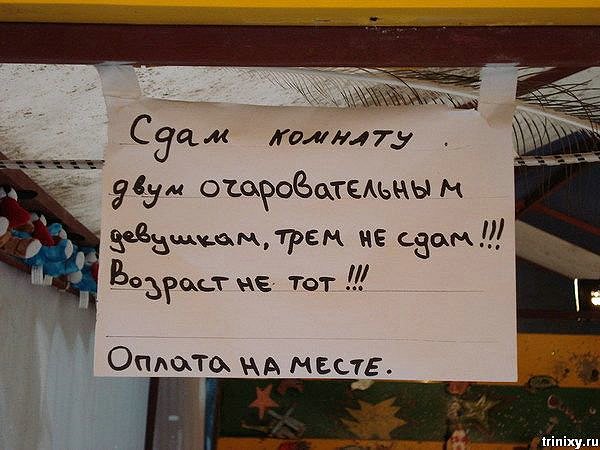 Сдам комнату .
двум очаровательным
девушкам, трем не сдам!!!
Возраст не тот!!!
Оплата на месте.
trinixy.ru